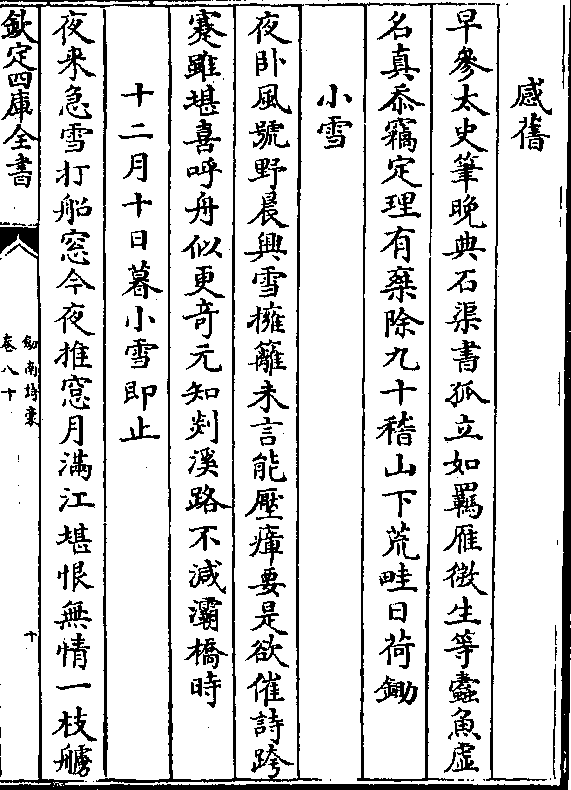 感舊
早參太史筆晚典石渠書孤立如羈雁微生等蠹魚虚
名真忝竊定理有棄除九十稽山下荒畦日荷鋤
小雪
夜卧風號野晨興雪擁籬未言能壓瘴要是欲催詩跨
蹇雖堪喜呼舟似更竒元知剡溪路不減灞橋時
十二月十日暮小雪即止
夜来急雪打船窓今夜推窓月滿江堪恨無情一枝艣
欽定四庫全書
劒南詩稾
卷八十
十